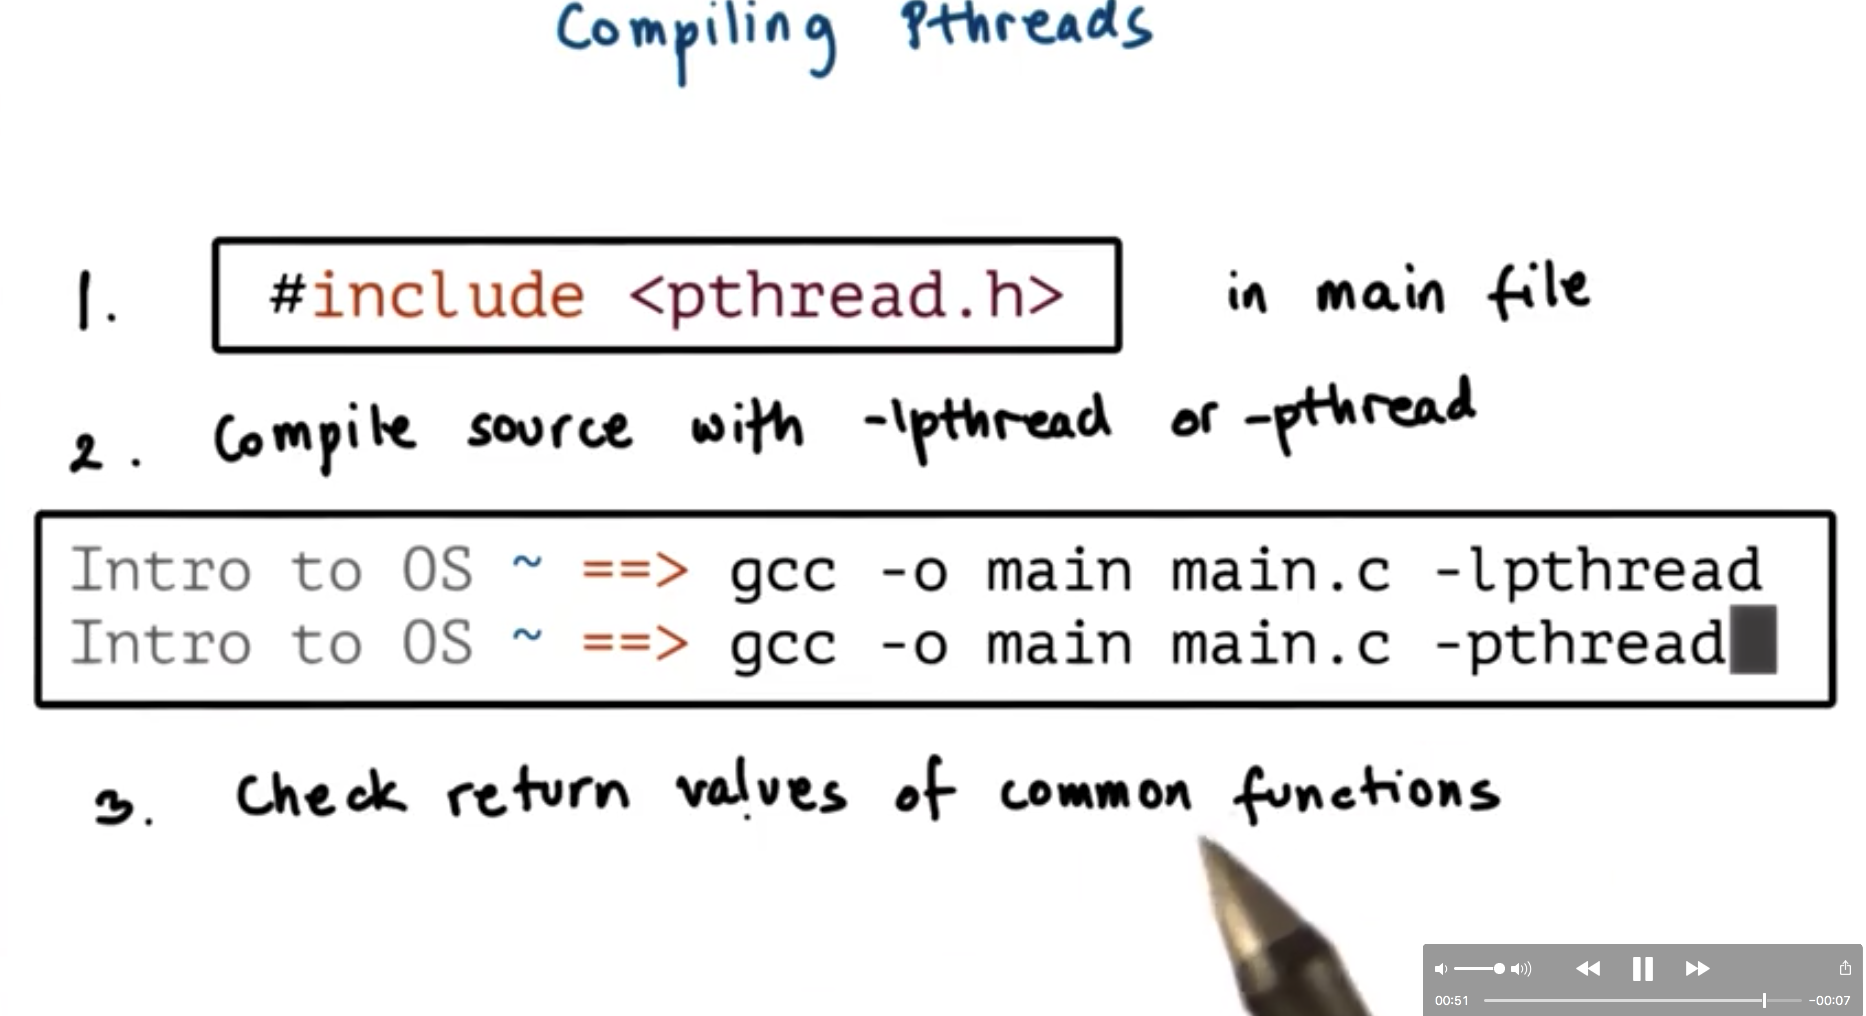 Compiling Pthreads
1. #include <pthread.h> in main file
2. Compile source with -lpthread or -pthread
Intro to OS ~ ==> gcc -o main main.c -lpthread
Intro to OS ~ ==> gcc -o main main.c -pthread
3. Check return values of common functions
00:51 -00:07